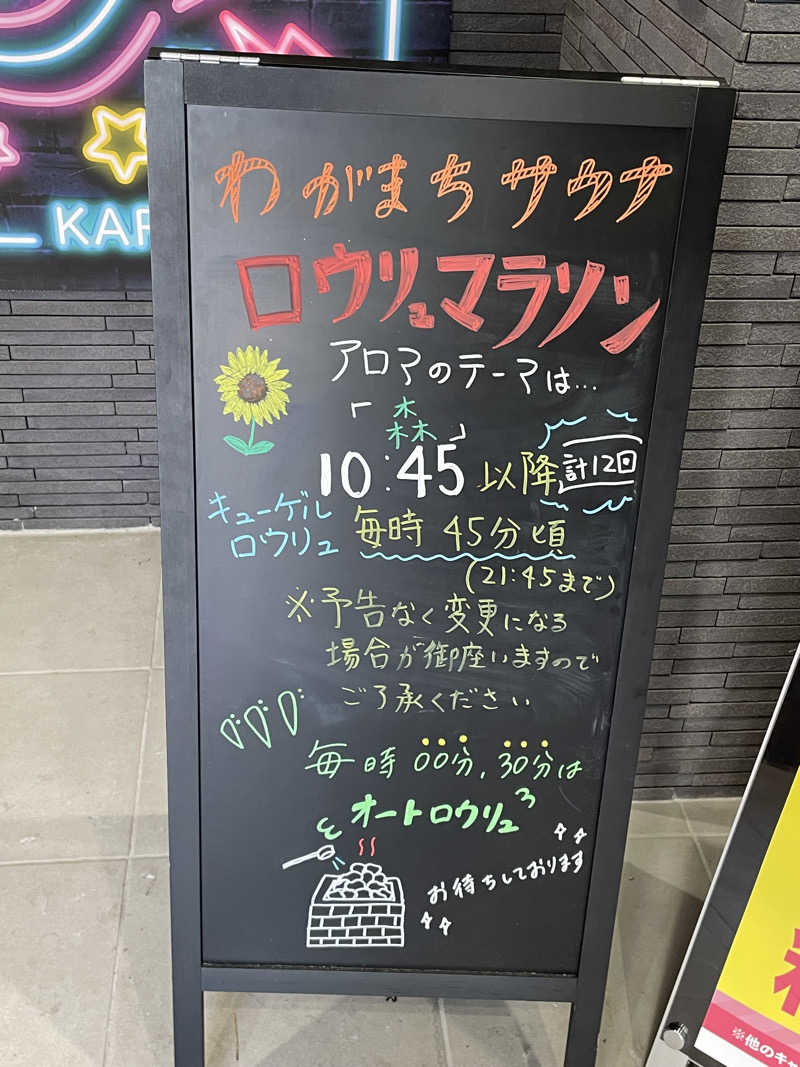 わがまちサウナ
ロウリュマラソン
アロマのテーマは…
「森」
10:45以降 計12回
キューゲル
ロウリュ
毎時45分頃
(21:45まで)
※予告なく変更になる
場合が御座いますので
ご了承ください
毎時00分,30分は
オートロウリュ
お待ちしております
KAR
※他のキャ